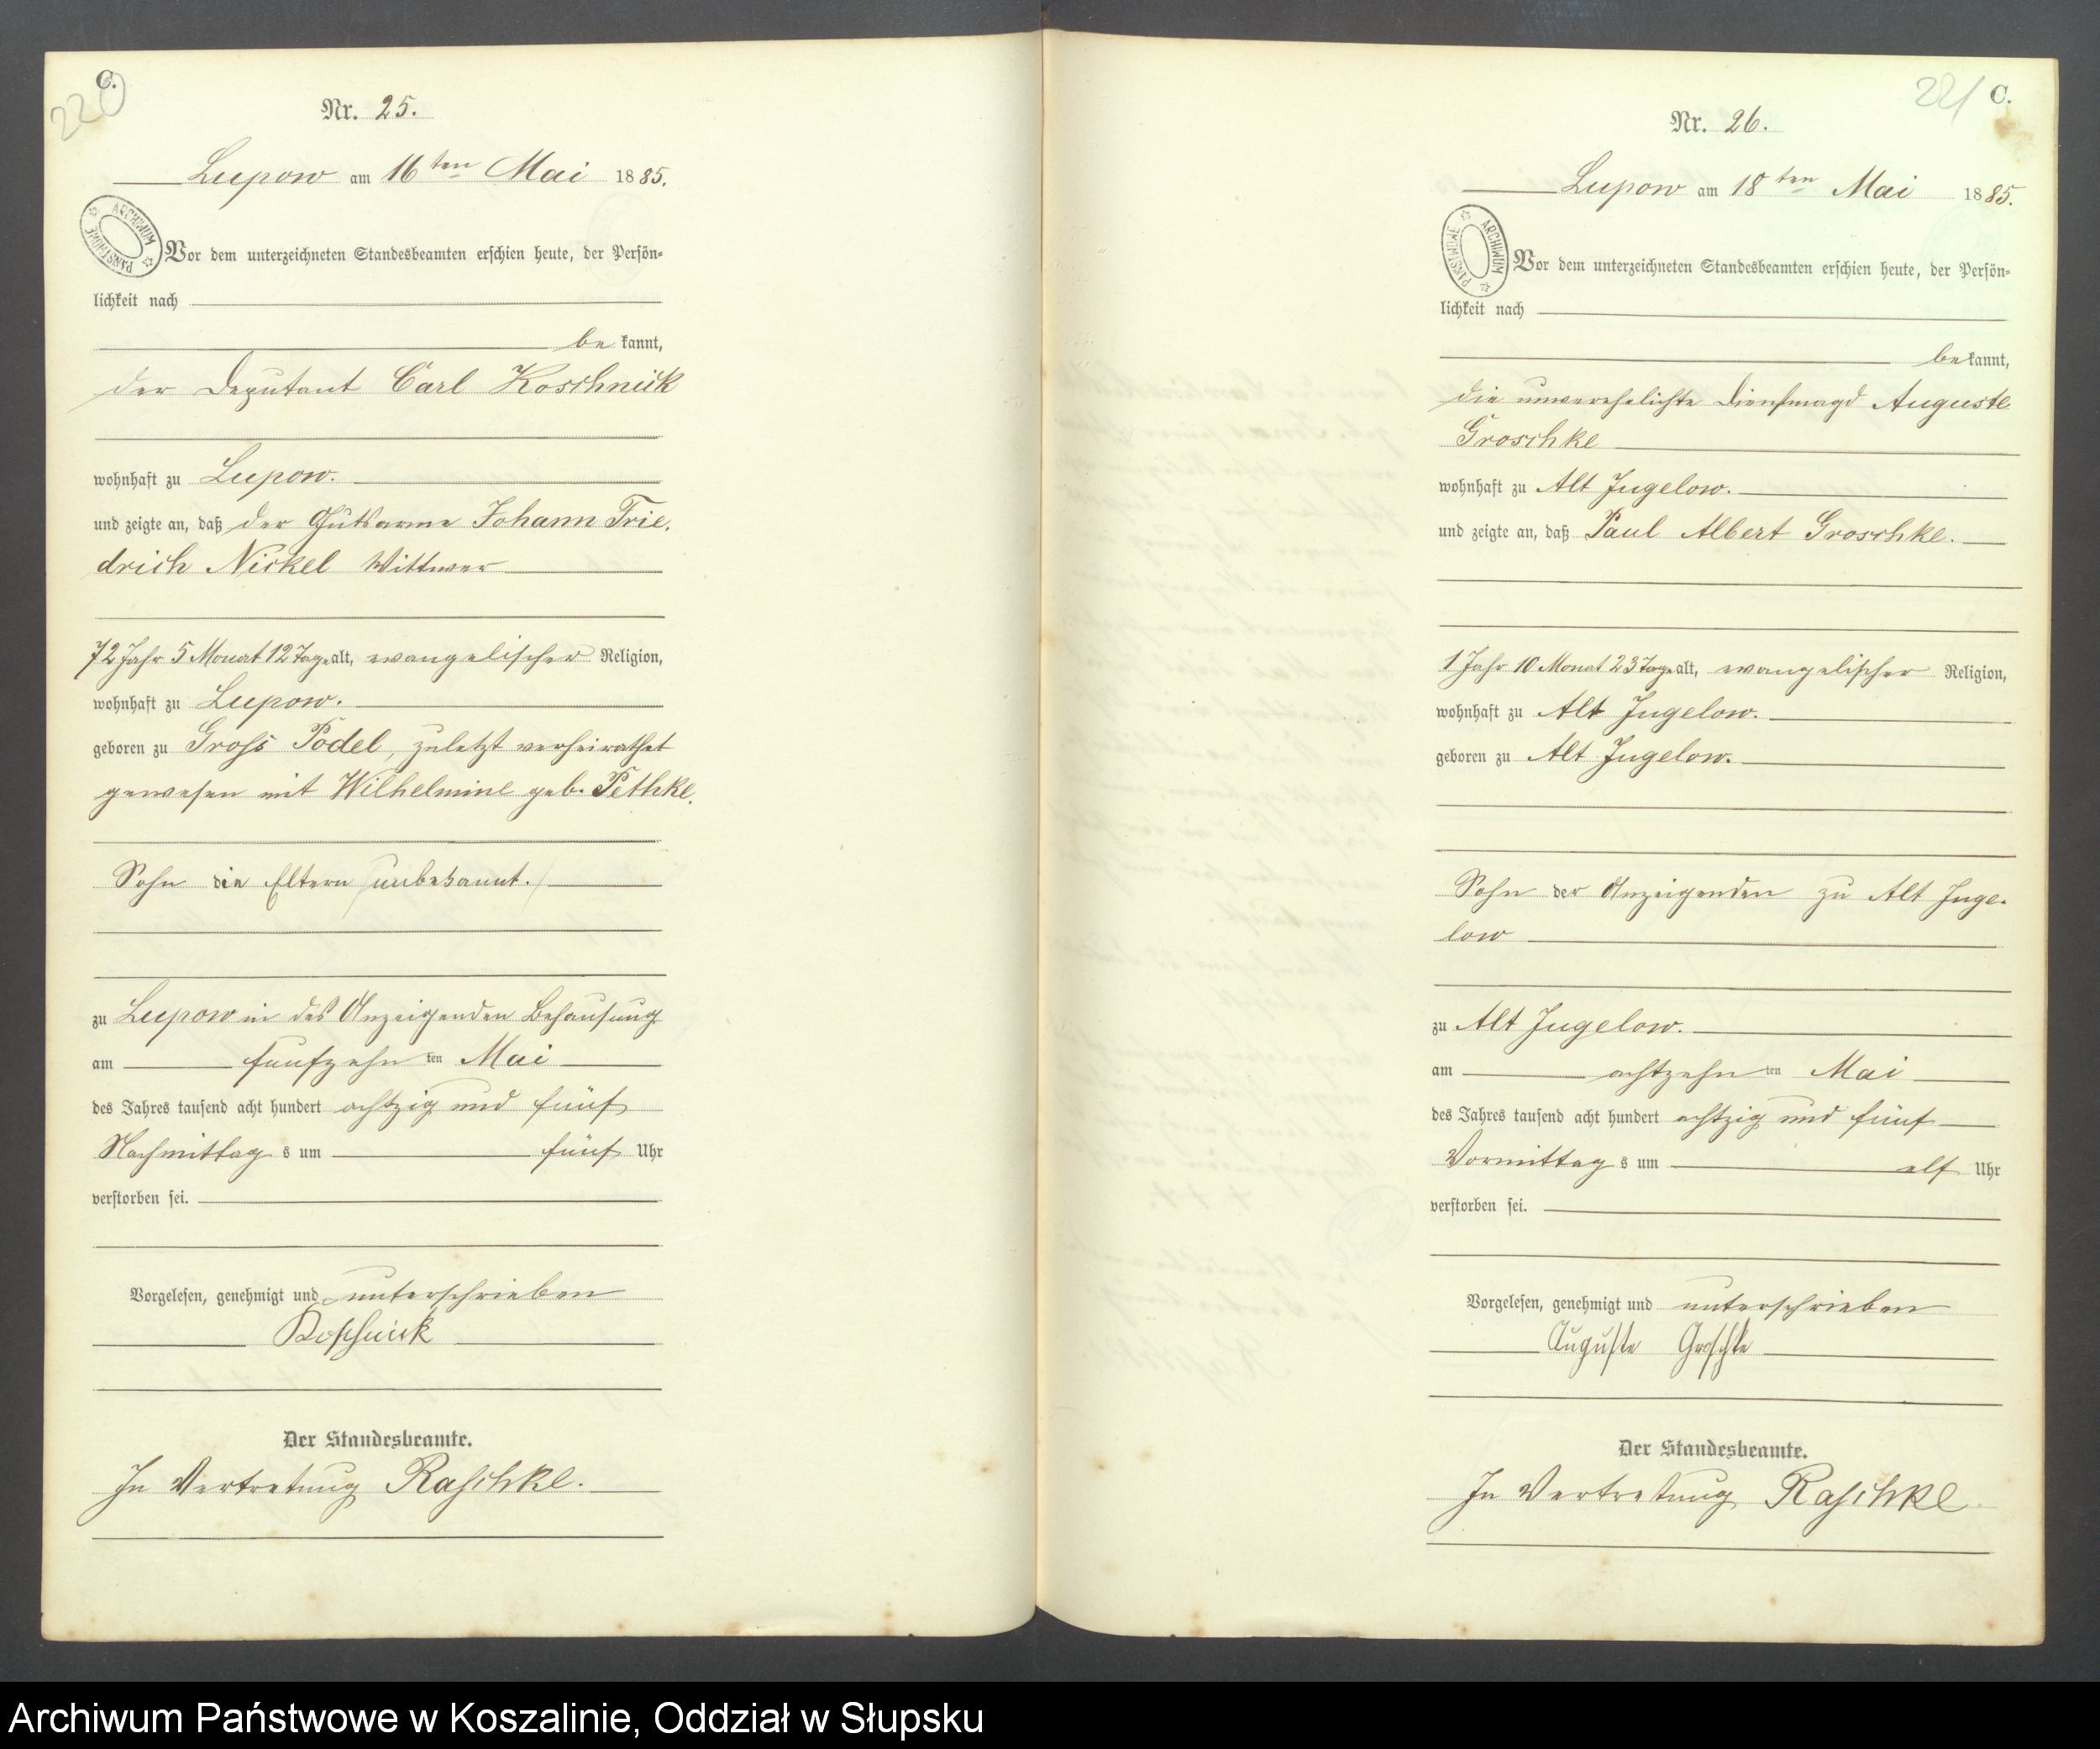 C.
220
Nr. 25.
Lupow am 16ten Mai 1885.
ARCHIWUM PAŃSTWOWE
Vor dem unterzeichneten Standesbeamten erschien heute, der Persön-
lichkeit nach
be kannt,
der Deputant Carl Koschnick
wohnhaft zu Lupow.
und zeigte an, daß der Gutsarme Johann Frie-
drich Nickel Wittwer
72 Jahr 5 Monat 12 Tage alt, evangelischer Religion,
wohnhaft zu Lupow.
geboren zu Gross Podel, zuletzt verheirathet
gewesen mit Wilhelmine geb. Pethke.
Sohn die Eltern (unbekannt.)
zu Lupow in des Anzeigenden Behausung
am fünfzehn ten Mai
des Jahres tausend acht hundert achtzig und fünf
Nachmittag s um fünf Uhr
verstorben sei.
Vorgelesen, genehmigt und unterschrieben
Koschnick
Der Standesbeamte.
In Vertretung Raschke.
221 C.
Nr. 26.
Lupow am 18ten Mai 1885.
ARCHIWUM PAŃSTWOWE
Vor dem unterzeichneten Standesbeamten erschien heute, der Persön-
lichkeit nach
be kannt,
die unverehelichte Dienstmagd Auguste
Groschke
wohnhaft zu Alt Jugelow.
und zeigte an, daß Paul Albert Groschke.
1 Jahr 10 Monat 23 Tage alt, evangelischer Religion,
wohnhaft zu Alt Jugelow.
geboren zu Alt Jugelow.
Sohn der Anzeigenden zu Alt Juge-
low
zu Alt Jugelow.
am achtzehn ten Mai
des Jahres tausend acht hundert achtzig und fünf
Vormittag s um elf Uhr
verstorben sei.
Vorgelesen, genehmigt und unterschrieben
Auguste Groschke
Der Standesbeamte.
In Vertretung Raschke.
Archiwum Państwowe w Koszalinie, Oddział w Słupsku